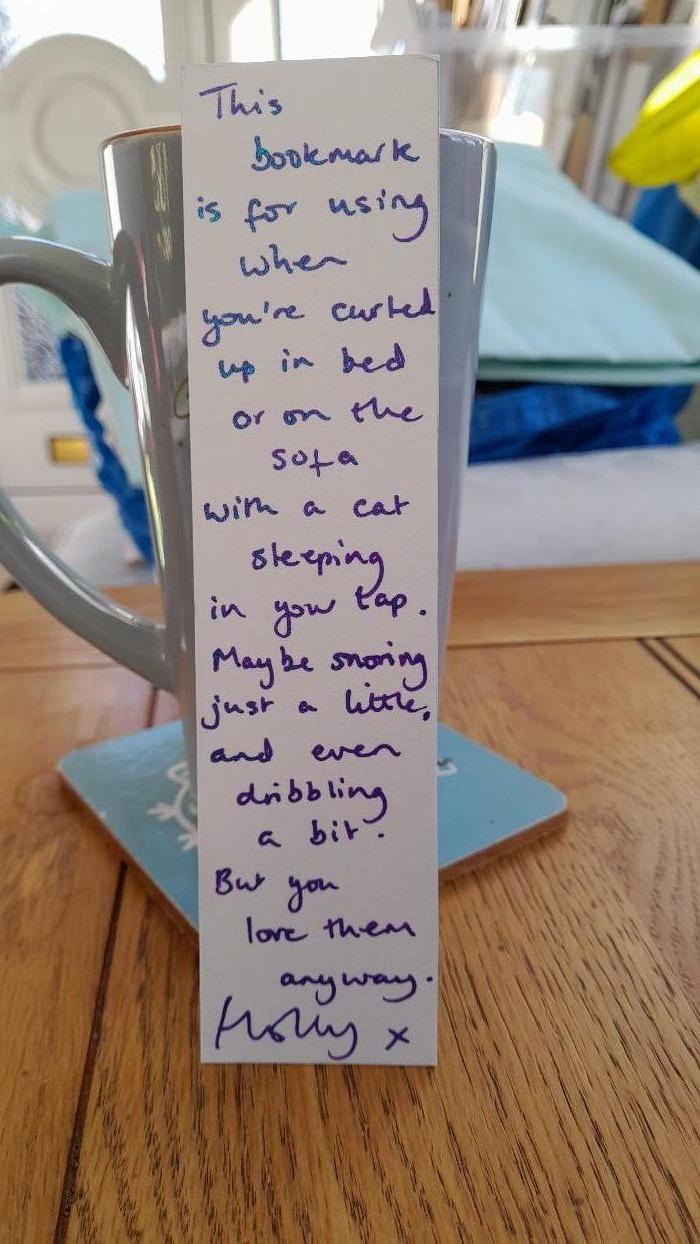 This
bookmark
is for using
when
you're curled
up in bed
or on the
sofa
with a cat
sleeping
in your lap.
Maybe snoring
just a little,
and even
dribbling
a bit.
But you
love them
anyway.
Holly x